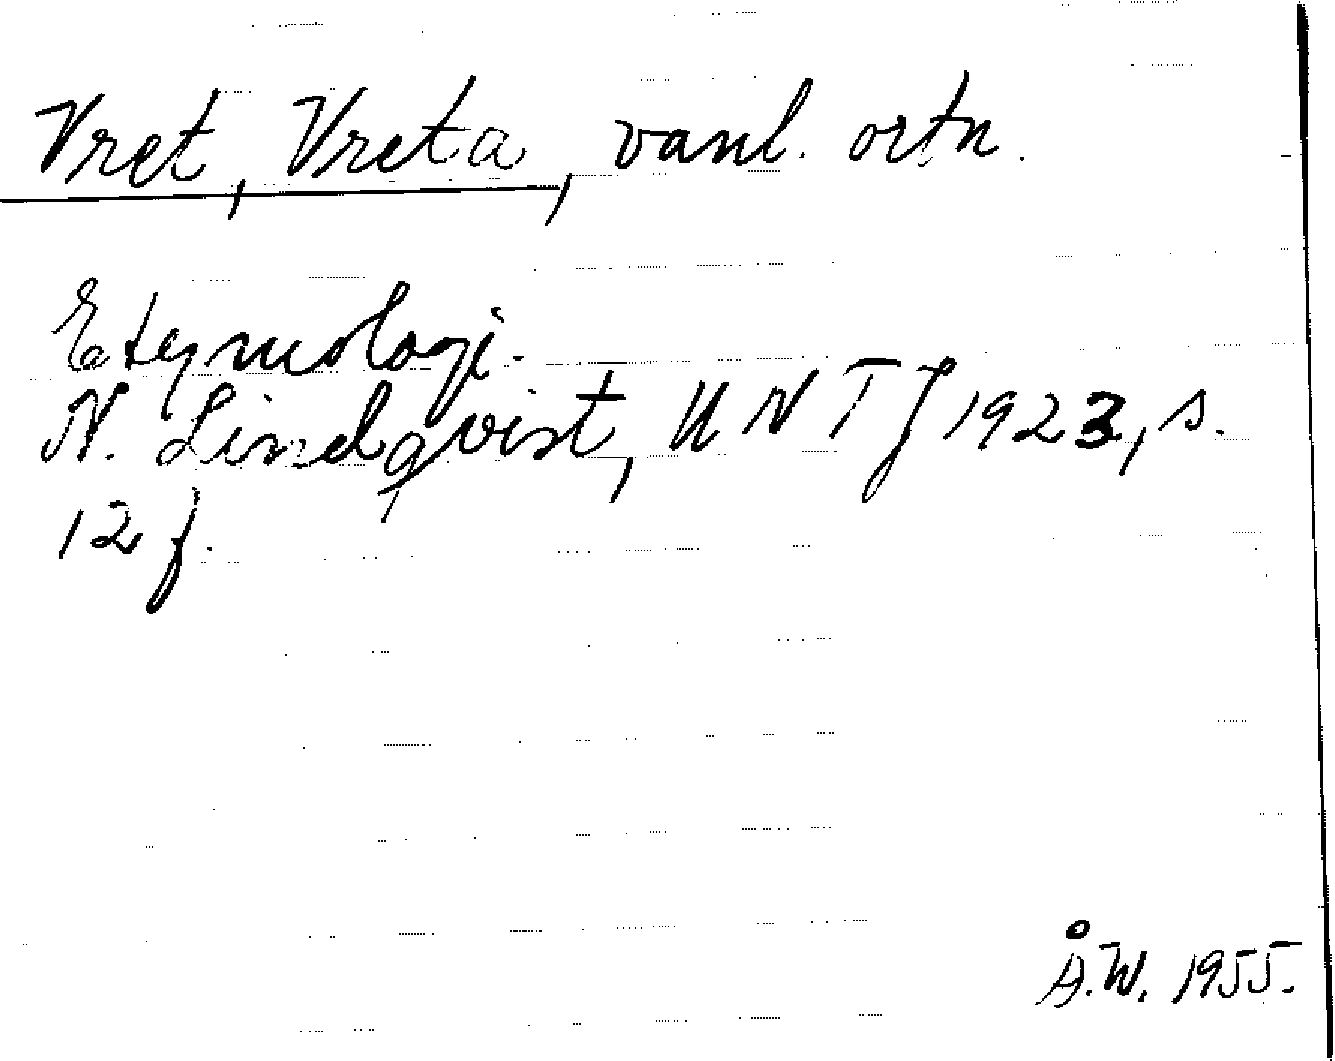 Vret, Vreta, vanl. ortn.
Etymologi.
N. Lindqvist, UNTJ 1923, s.
12 f.
Å.W. 1955.